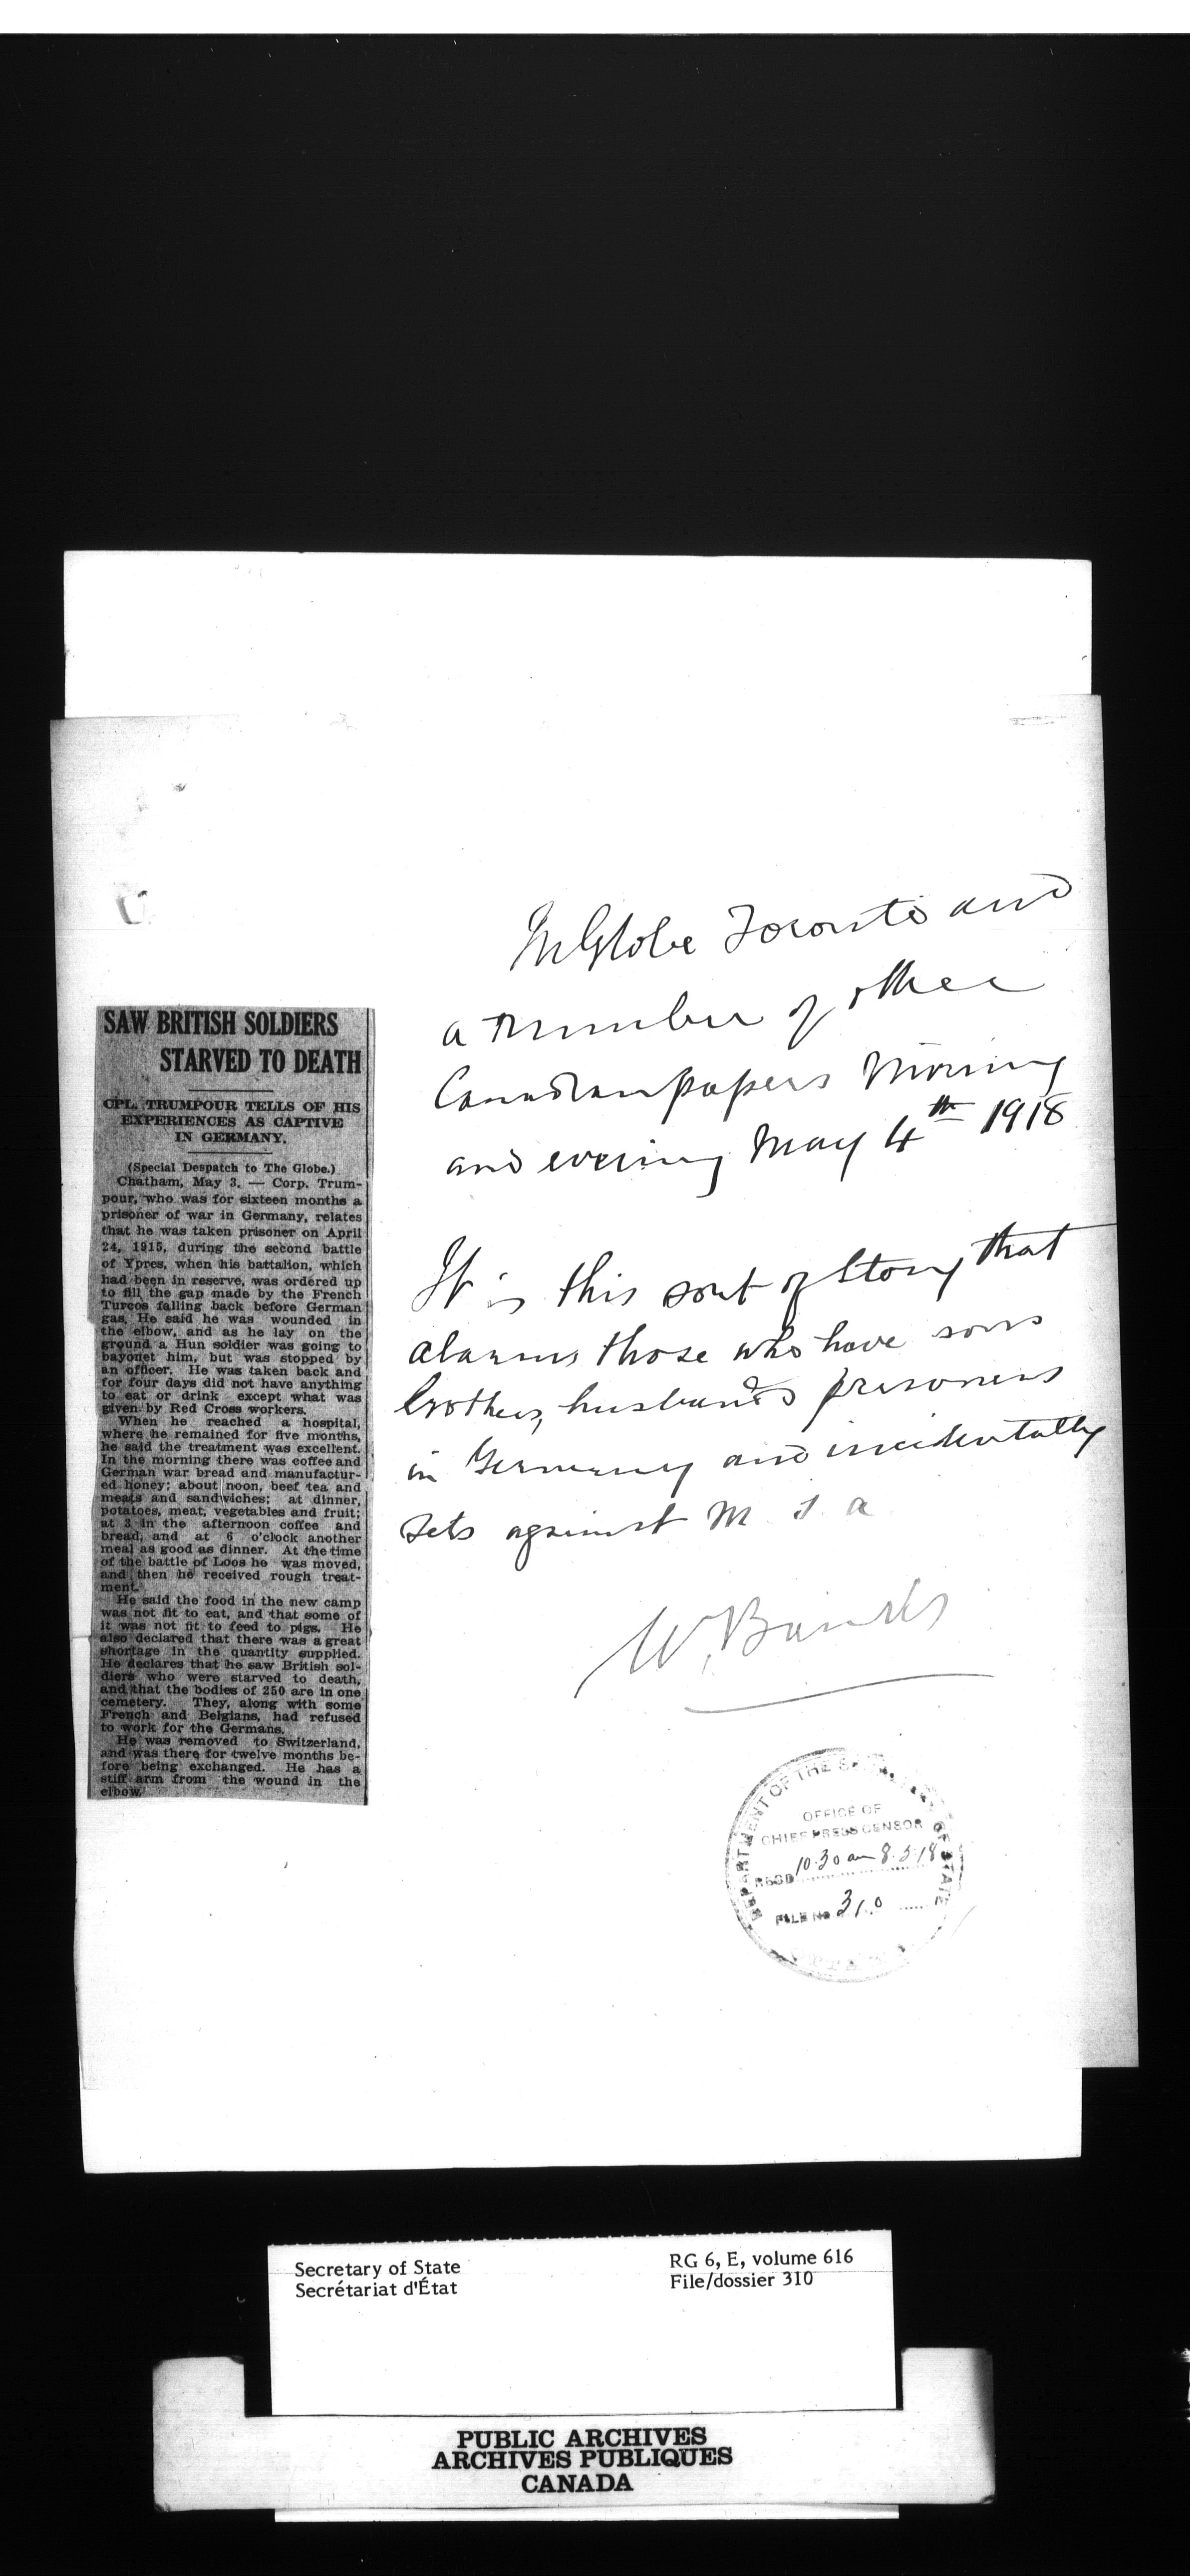 SAW BRITISH SOLDIERS
STARVED TO DEATH
CPL. TRUMPOUR TELLS OF HIS
EXPERIENCES AS CAPTIVE
IN GERMANY.
(Special Despatch to The Globe.)
Chatham, May 3. — Corp. Trum-
pour, who was for sixteen months a
prisoner of war in Germany, relates
that he was taken prisoner on April
24, 1915, during the second battle
of Ypres, when his battalion, which
had been in reserve, was ordered up
to fill the gap made by the French
Turcos falling back before German
gas. He said he was wounded in
the elbow, and as he lay on the
ground a Hun soldier was going to
bayonet him, but was stopped by
an officer. He was taken back and
for four days did not have anything
to eat or drink except what was
given by Red Cross workers.
When he reached a hospital,
where he remained for five months,
he said the treatment was excellent.
In the morning there was coffee and
German war bread and manufactur-
ed honey; about noon, beef tea and
meats and sandwiches; at dinner,
potatoes, meat, vegetables and fruit;
at 3 in the afternoon coffee and
bread, and at 6 o'clock another
meal as good as dinner. At the time
of the battle of Loos he was moved,
and then he received rough treat-
ment.
He said the food in the new camp
was not fit to eat, and that some of
it was not fit to feed to pigs. He
also declared that there was a great
shortage in the quantity supplied.
He declares that he saw British sol-
diers who were starved to death,
and that the bodies of 250 are in one
cemetery. They, along with some
French and Belgians, had refused
to work for the Germans.
He was removed to Switzerland,
and was there for twelve months be-
fore being exchanged. He has a
stiff arm from the wound in the
elbow.
Globe Toronto and
a number of other
Canadian papers Morning
and evening May 4th 1918
It is this sort of story that
alarms those who have sons
brothers, husbands prisoners
in Germany and incidentally
sets against M. S. A
W. Banks
DEPARTMENT OF THE SECRETARY OF STATE
OFFICE OF
CHIEF PRESS CENSOR
RECD 10.30 am 8.5.18
FILE No. 310
OTTAWA
Secretary of State
Secrétariat d'État
RG 6, E, volume 616
File/dossier 310
PUBLIC ARCHIVES
ARCHIVES PUBLIQUES
CANADA